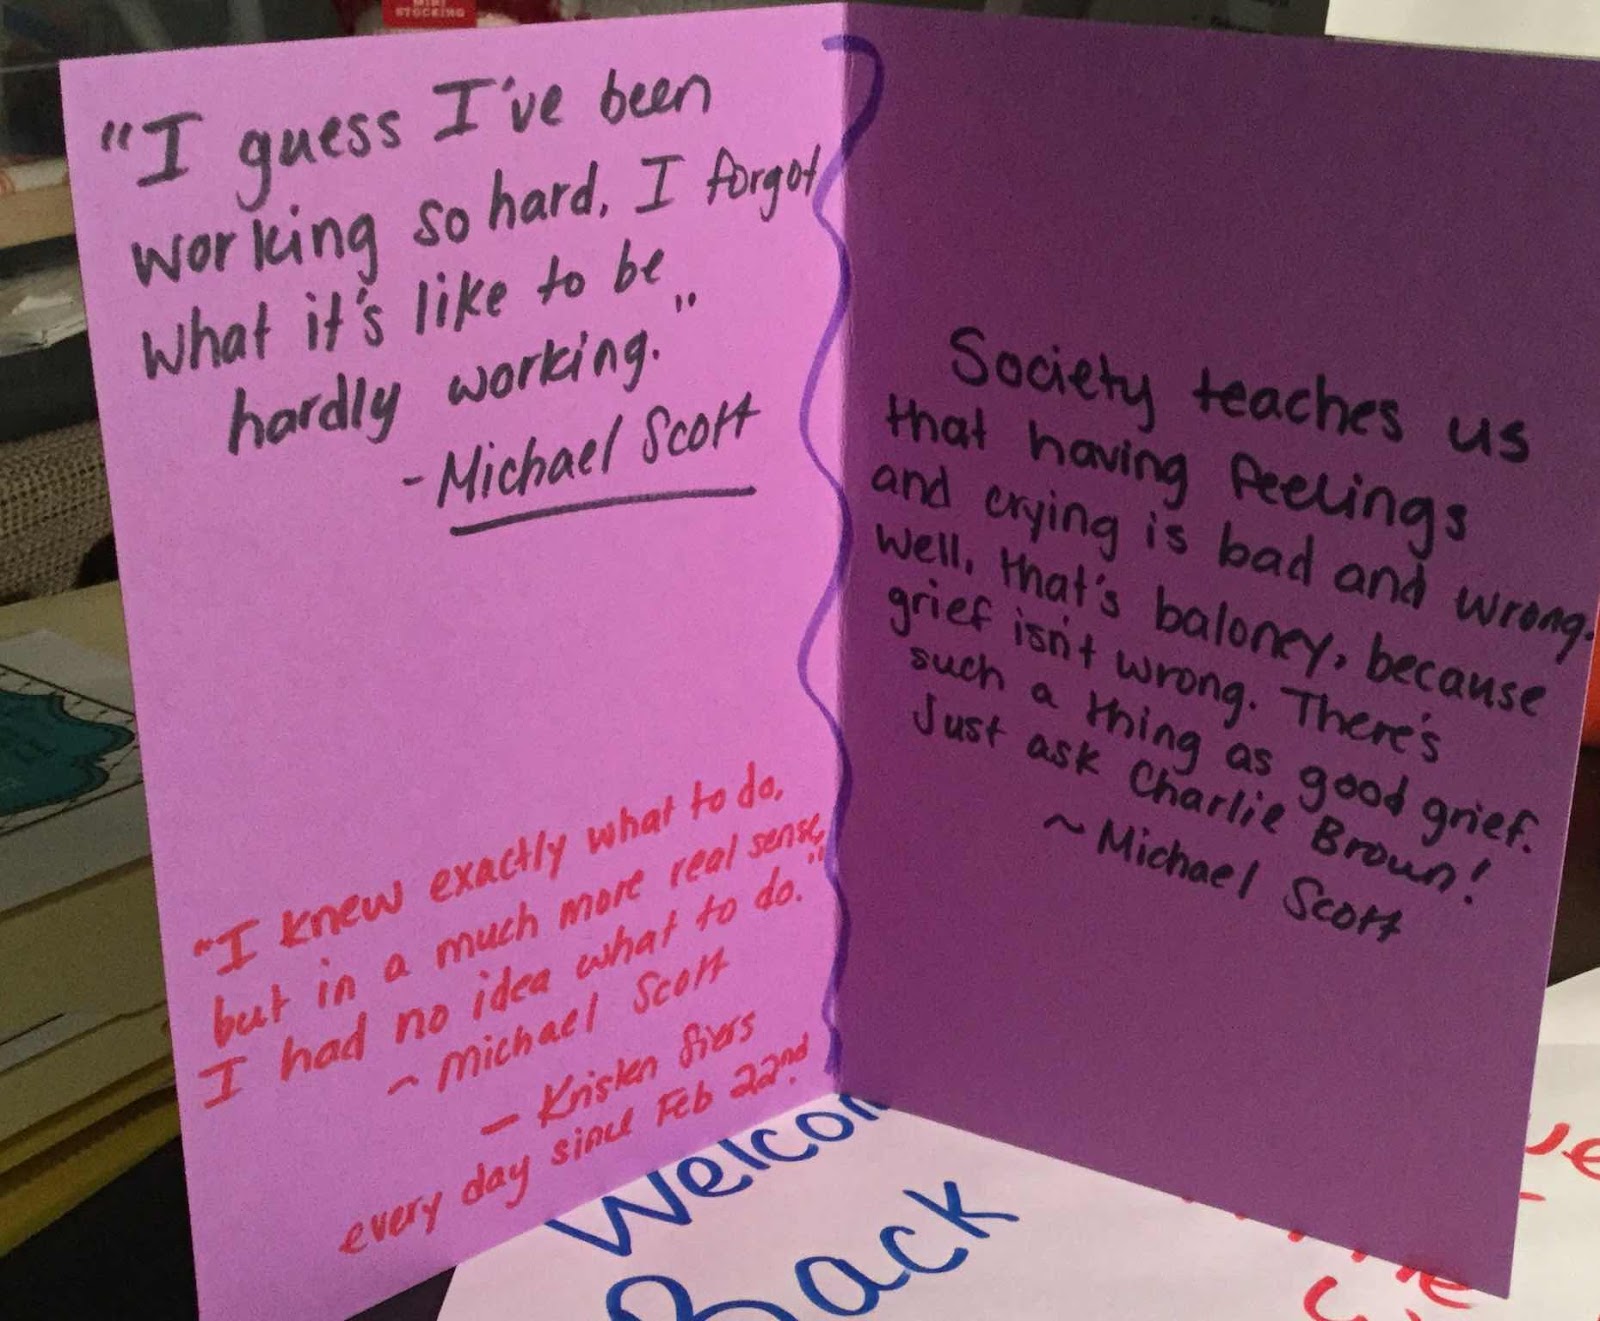 MINI
STOCKING
"I guess I've been
working so hard, I forgot
what it's like to be
hardly working."
- Michael Scott
"I knew exactly what to do,
but in a much more real sense,
I had no idea what to do."
~ Michael Scott
- Kristen Siers
every day since Feb 22nd.
Society teaches us
that having feelings
and crying is bad and wrong.
Well, that's baloney, because
grief isn't wrong. There's
such a thing as good grief.
Just ask Charlie Brown!
~ Michael Scott
Welcom
Back